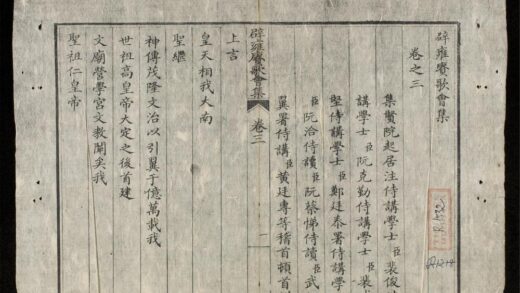 辟雍賡歌會集
卷之三
集賢院起居注侍講學士臣裴俊
講學士臣阮克勤侍講學士臣裴
堅侍講學士臣鄭廷泰署侍講學
臣阮洽侍讀臣阮蔡悌侍讀臣武
翼署侍講臣黃廷專等稽首頓首
辟雍賡歌會集 卷三 一
上言
皇天相我大南
聖繼
神傳茂隆文治以引翼于億萬載我
世祖高皇帝大定之後首建
文廟營學宮文教闡矣我
聖祖仁皇帝